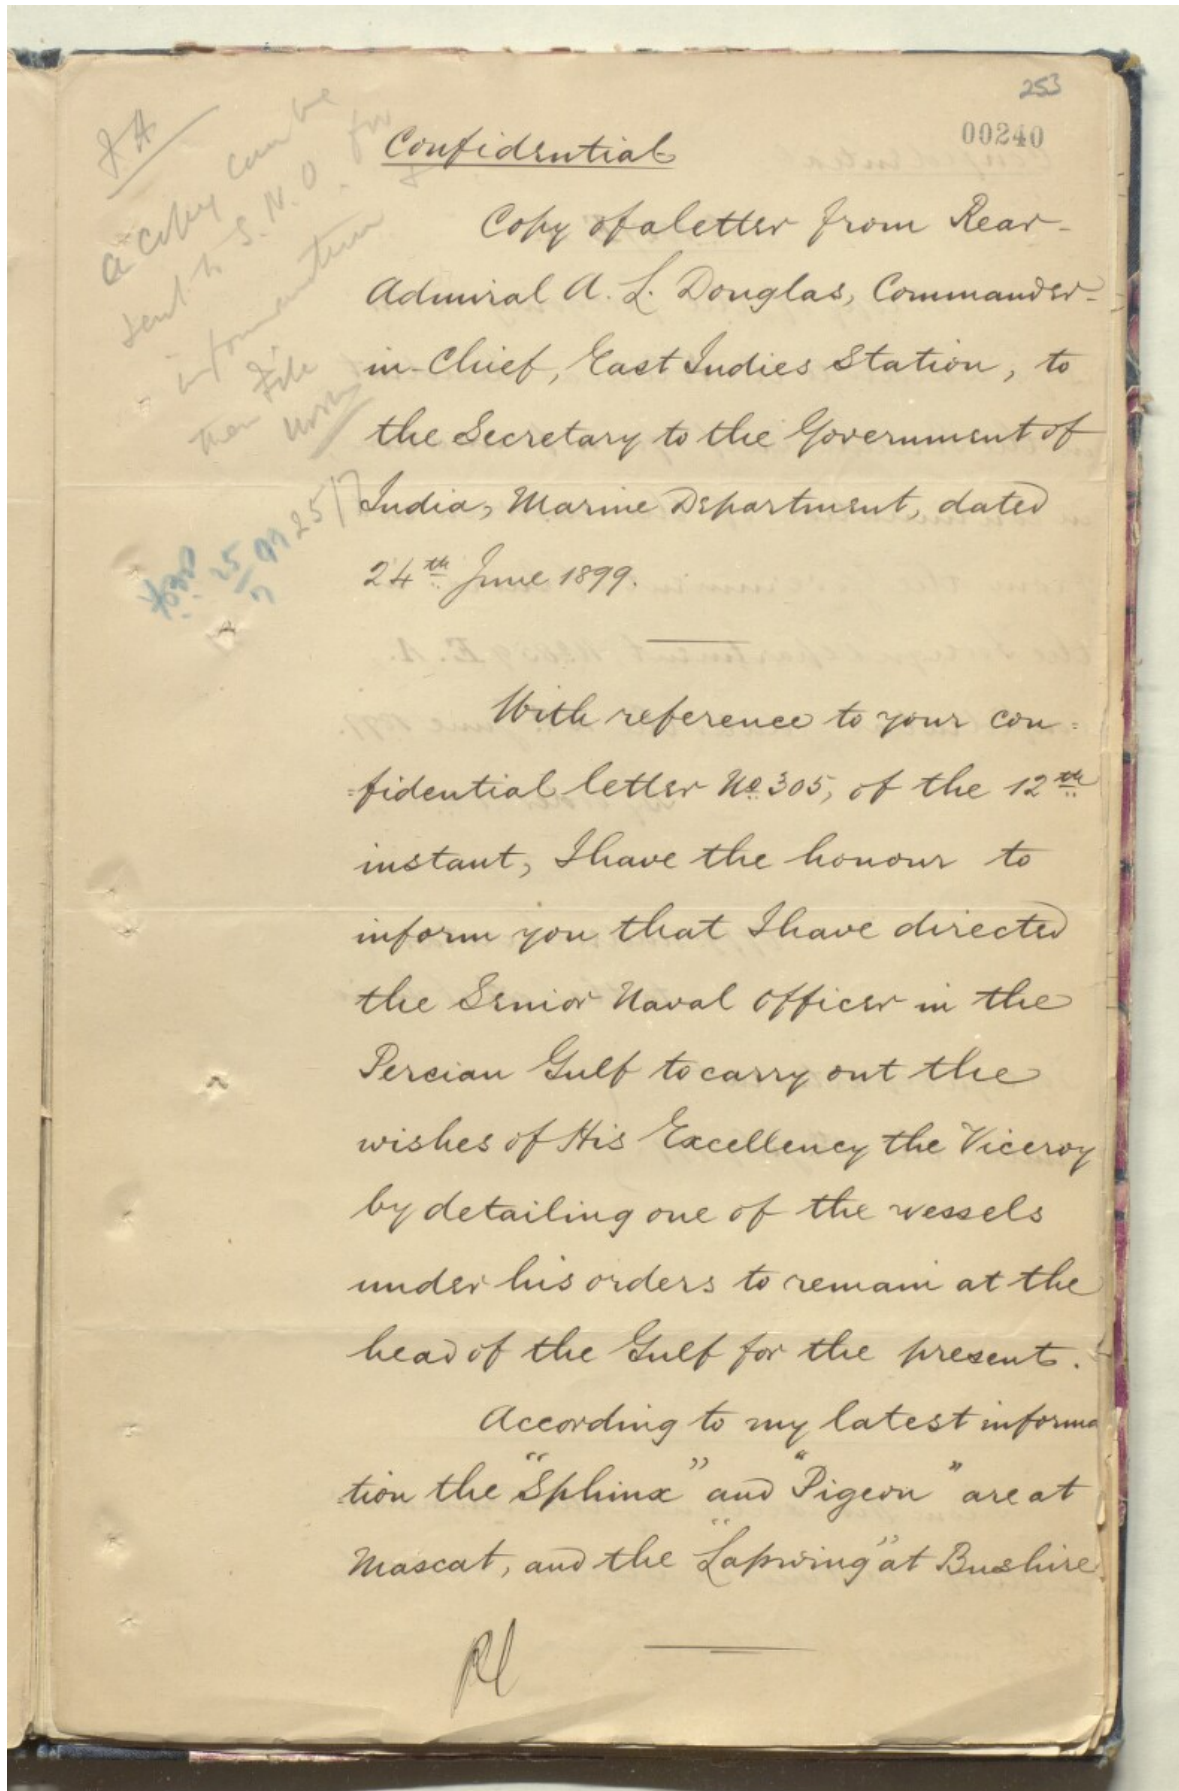 253
00240
Confidential
Copy of a letter from Rear-
Admiral A. L. Douglas, Commander-
in-Chief, East Indies Station, to
the Secretary to the Government of
India, Marine Department, dated
24th June 1899.
With reference to your con=
=fidential letter No. 305, of the 12th
instant, I have the honour to
inform you that I have directed
the Senior Naval Officer in the
Percian Gulf to carry out the
wishes of His Excellency the Viceroy
by detailing one of the vessels
under his orders to remain at the
head of the Gulf for the present.
According to my latest informa
tion the "Sphinx" and "Pigeon" are at
Mascat, and the "Lapwing" at Bushire
a copy can be
sent to S. N. O. for
information
then File
25/7
25/7 99